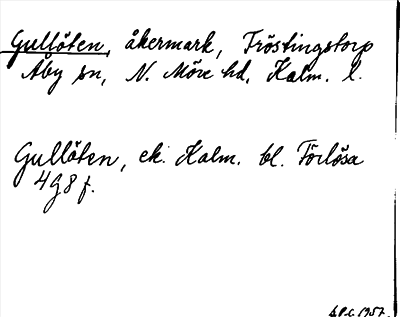 Gullöten, åkermark, Tröstingstorp
Åby sn, N. Möre hd, Kalm. l.
Gullöten, ek. Kalm. bl. Förlösa
4G8f.
1957.